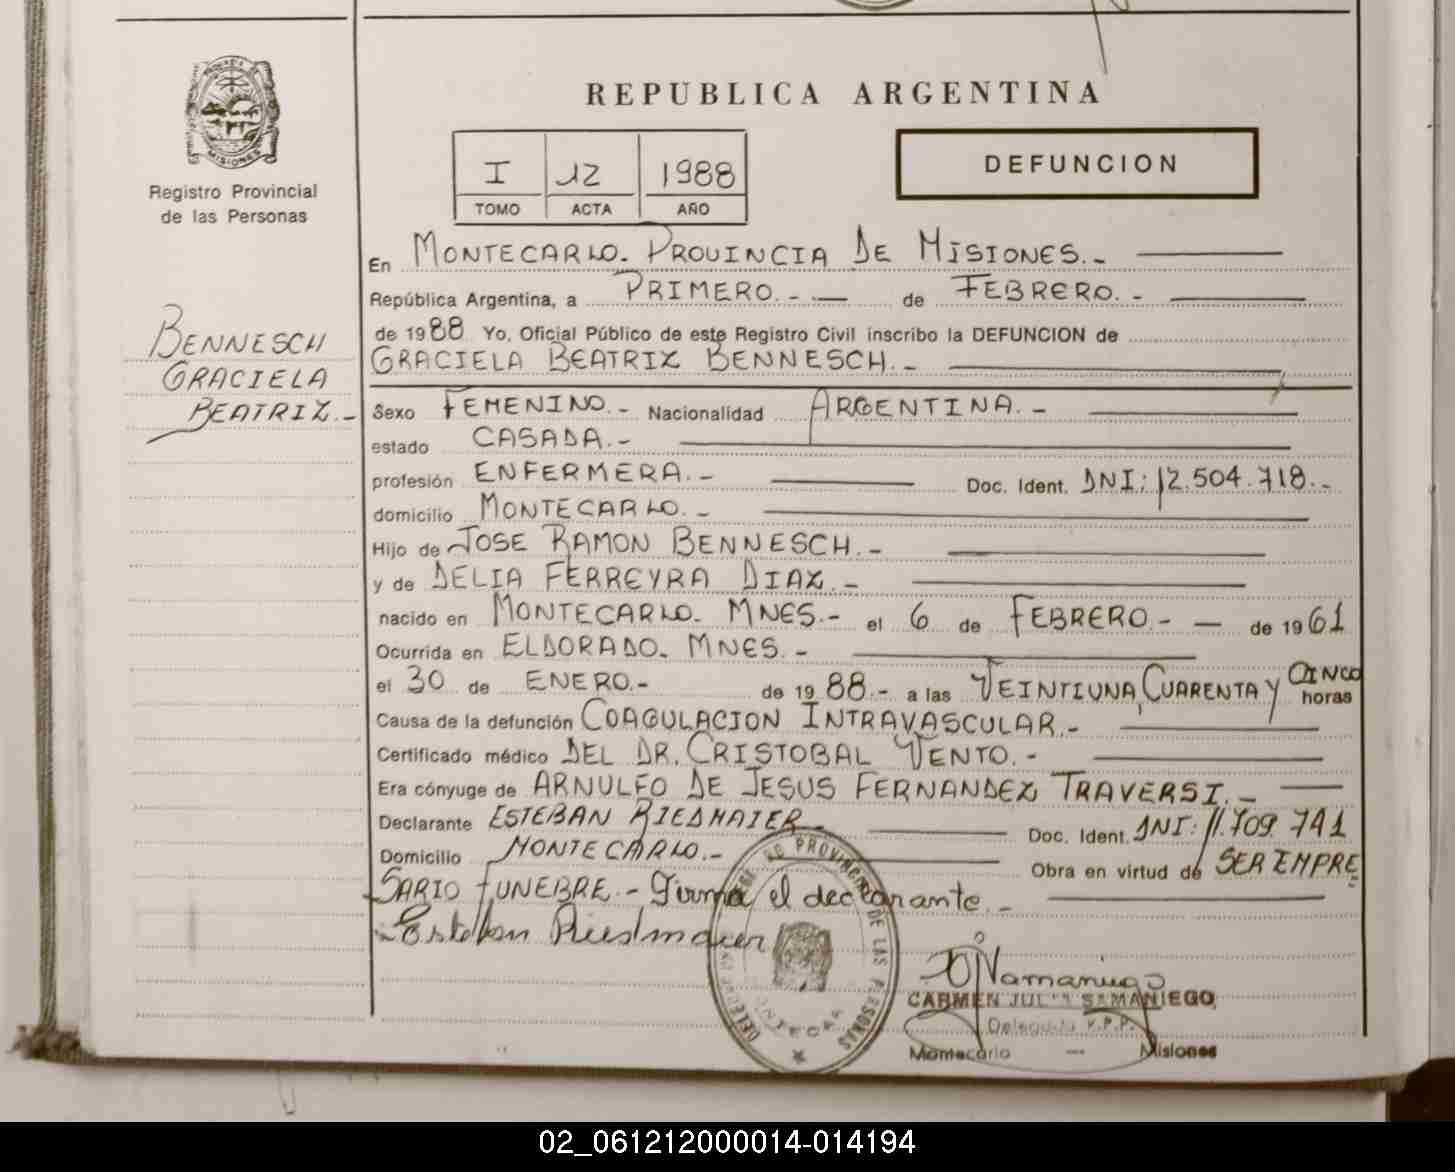 REPUBLICA ARGENTINA
MISIONES
Registro Provincial
de las Personas
I 12 1988
TOMO ACTA AÑO
DEFUNCION
BENNESCH
GRACIELA
BEATRIZ.-
En MONTECARLO. PROVINCIA DE MISIONES.-
República Argentina, a PRIMERO.- de FEBRERO.-
de 1988 Yo, Oficial Público de este Registro Civil inscribo la DEFUNCION de
GRACIELA BEATRIZ BENNESCH.-
Sexo FEMENINO.- Nacionalidad ARGENTINA.-
estado CASADA.-
profesión ENFERMERA.- Doc. Ident. DNI: 12.504.718.-
domicilio MONTECARLO.-
Hijo de JOSE RAMON BENNESCH.-
y de DELIA FERREYRA DIAZ.-
nacido en MONTECARLO. MNES.- el 6 de FEBRERO.- de 1961
Ocurrida en ELDORADO. MNES.-
el 30 de ENERO.- de 1988.- a las VEINTIUNA, CUARENTA Y CINCO horas
Causa de la defunción COAGULACION INTRAVASCULAR.-
Certificado médico DEL DR. CRISTOBAL VENTO.-
Era cónyuge de ARNULFO DE JESUS FERNANDEZ TRAVERSI.-
Declarante ESTEBAN RIEDMAIER.- Doc. Ident. DNI: 11.709.741
Domicilio MONTECARLO.- Obra en virtud de SER EMPRE
SARIO FUNEBRE.- Firma el declarante.-
Esteban Riedmaier
CARMEN SAMANIEGO
Montecarlo — Misiones
02_061212000014-014194